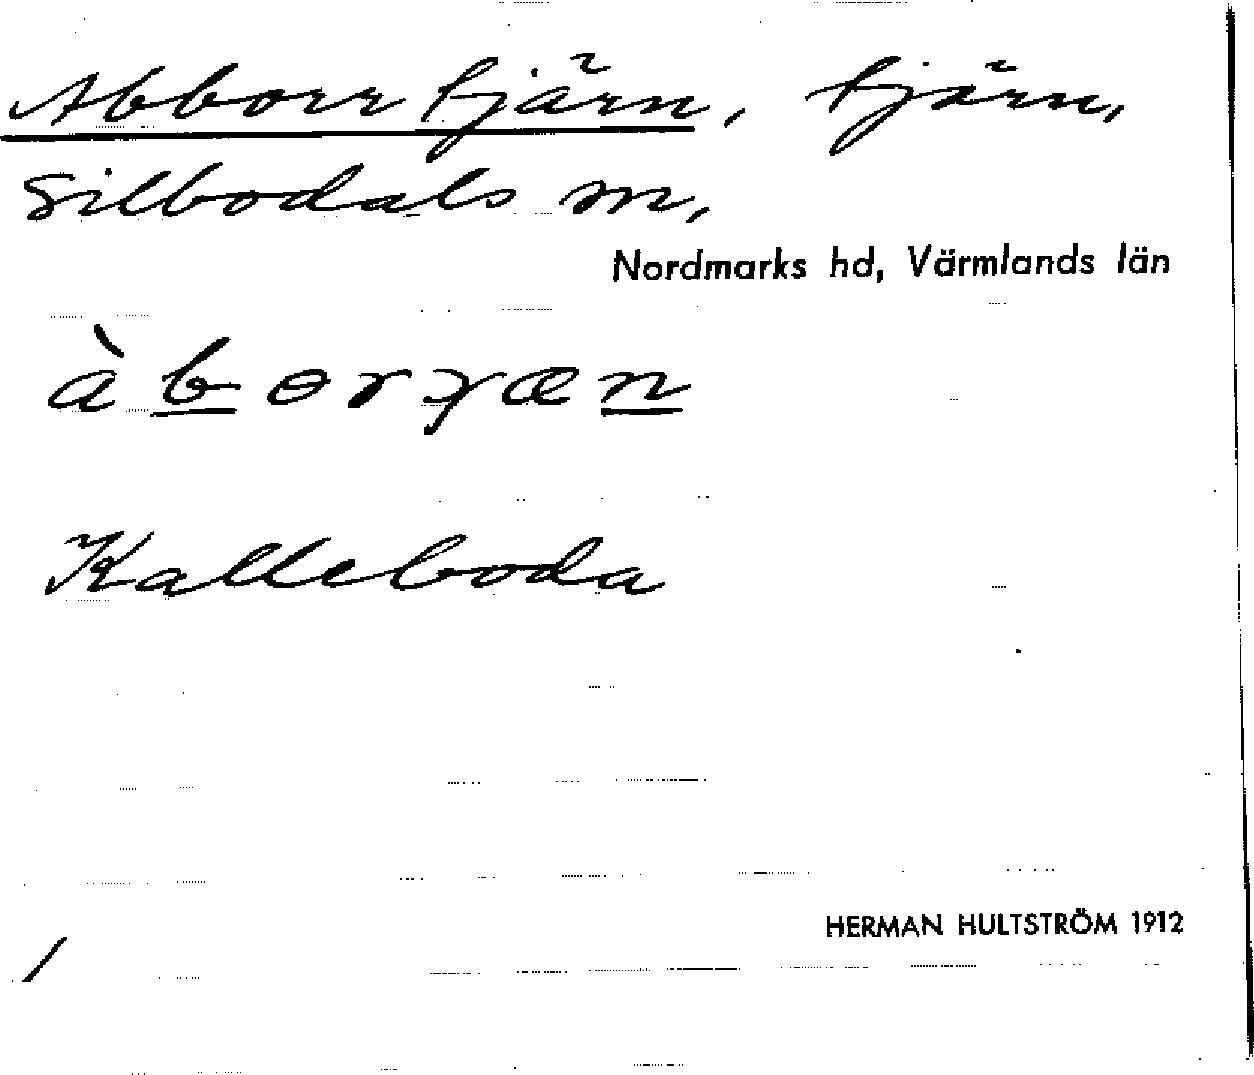 Abborrtjärn, tjärn,
Silbodals sn,
Nordmarks hd, Värmlands län
Kalleboda
HERMAN HULTSTRÖM 1912
/